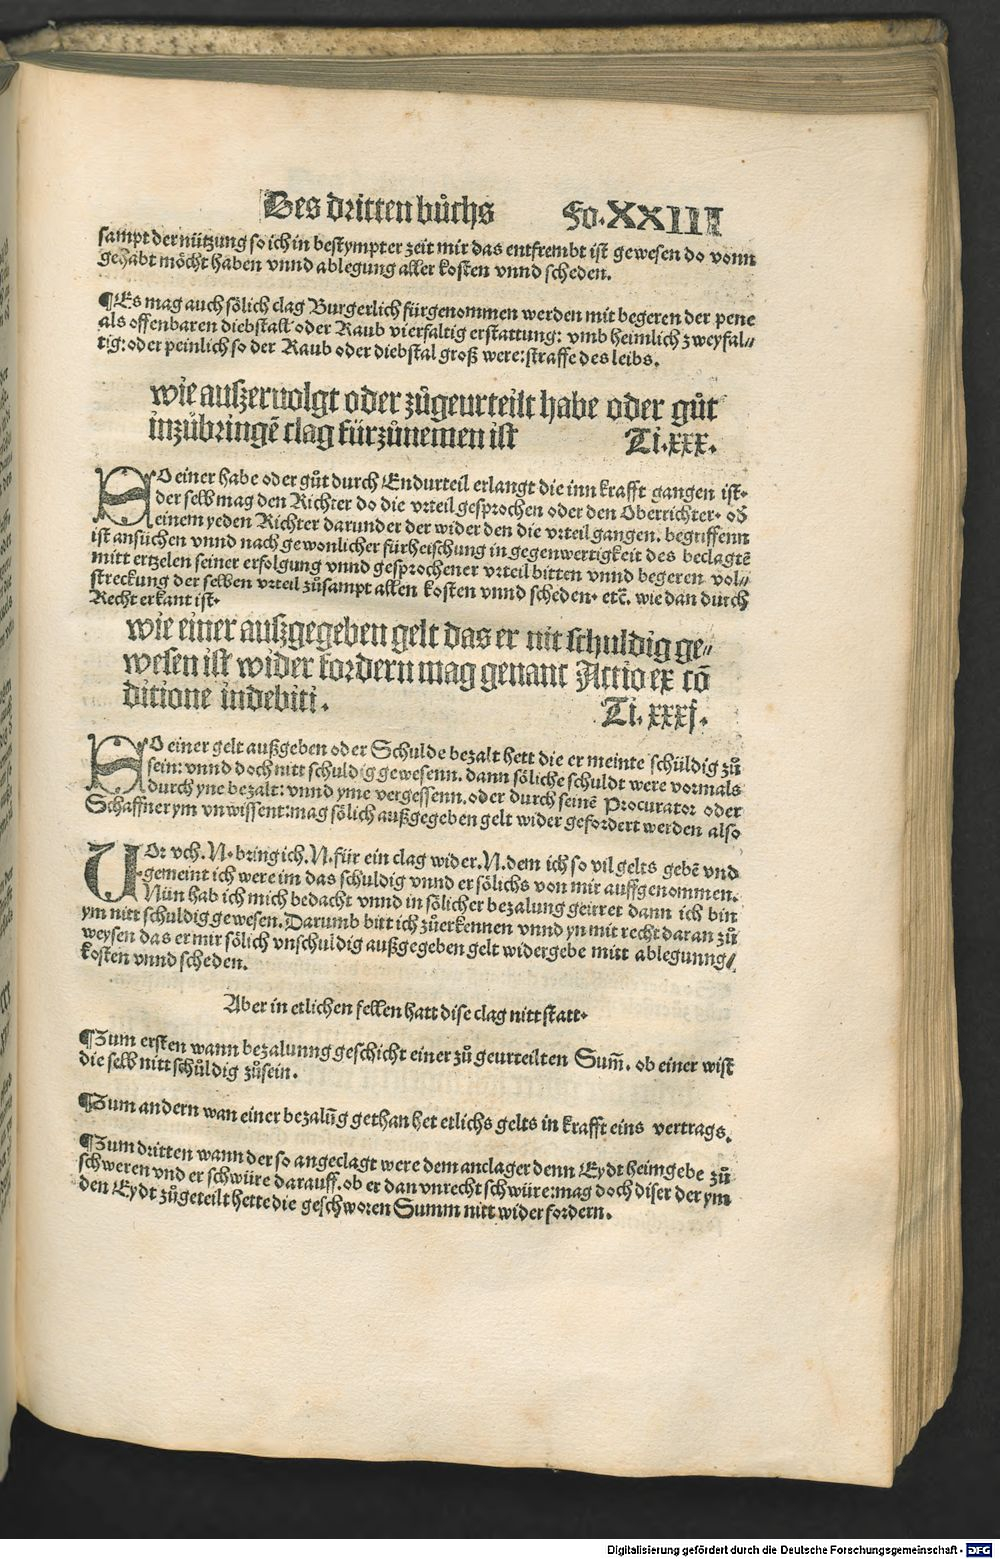 Des dritten bůchs Fo. XXIII
sampt der nützung so ich in bestympter zeit mir das entfrembt ist gewesen do vonn
gehabt möcht haben vnnd ablegung aller kosten vnnd scheden.
¶Es mag auch sölich clag Burgerlich fürgenommen werden mit begeren der pene
als offenbaren diebstall oder Raub vierfaltig erstattung: vmb heimlich zweyfal⸗
tig: oder peinlich so der Raub oder diebstal groß were: straffe des leibs.
wie auszeruolgt oder zůgeurteilt habe oder gůt
inzůbringē clag fürzůnemen ist Ti. xxx.
SO einer habe oder gůt durch Endurteil erlangt die inn krafft gangen ist.
der selb mag den Richter do die vrteil gesprochen oder den Oberrichter. od̄
einem yeden Richter darunder der wider den die vrteil gangen. begriffenn
ist ansüchen vnnd nach gewonlicher fürheischung in gegenwertigkeit des beclagtē
mitt ertzelen seiner erfolgung vnnd gesprochener vrteil bitten vnnd begeren vol⸗
streckung der selben vrteil zůsampt allen kosten vnnd scheden. etc̄. wie dan durch
Recht erkant ist.
wie einer auszgegeben gelt das er nit schuldig ge⸗
wesen ist wider fordern mag genant Actio ex cō
ditione indebiti. Ti. xxxj.
SO einer gelt außgeben oder Schulde bezalt hett die er meinte schüldig zů
sein: vnnd doch nitt schuldig gewesenn. dann söliche schuldt were vormals
durch yne bezalt: vnnd yme vergessenn. oder durch seinē Procurator oder
Schaffner ym vnwissent: mag sölich außgegeben gelt wider gefordert werden also
VOr vch. N. bring ich. N. für ein clag wider. N. dem ich so vil gelts gebē vnd
gemeint ich were im das schuldig vnnd er sölichs von mir auffgenommen.
Nün hab ich mich bedacht vnnd in sölicher bezalung geirret dann ich bin
ym nitt schuldig gewesen. Darumb bitt ich zůerkennen vnnd yn mit recht daran zů
weysen das er mir sölich vnschuldig außgegeben gelt widergebe mitt ablegunng⸗
kosten vnnd scheden.
Aber in etlichen fellen hatt dise clag nitt statt.
¶Zum ersten wann bezalunng geschicht einer zů geurteilten Sum̄. ob einer wist
die selb nitt schůldig zůsein.
¶Zum andern wan einer bezalūg gethan het etlichs gelts in krafft eins vertrags.
¶Zum dritten wann der so angeclagt were dem anclager denn Eydt heimgebe zů
schweren vnd er schwüre darauff. ob er dan vnrecht schwüre: mag doch diser der ym
den Eydt zůgeteilt hette die geschworen Summ nitt wider fordern.
Digitalisierung gefördert durch die Deutsche Forschungsgemeinschaft - DFG